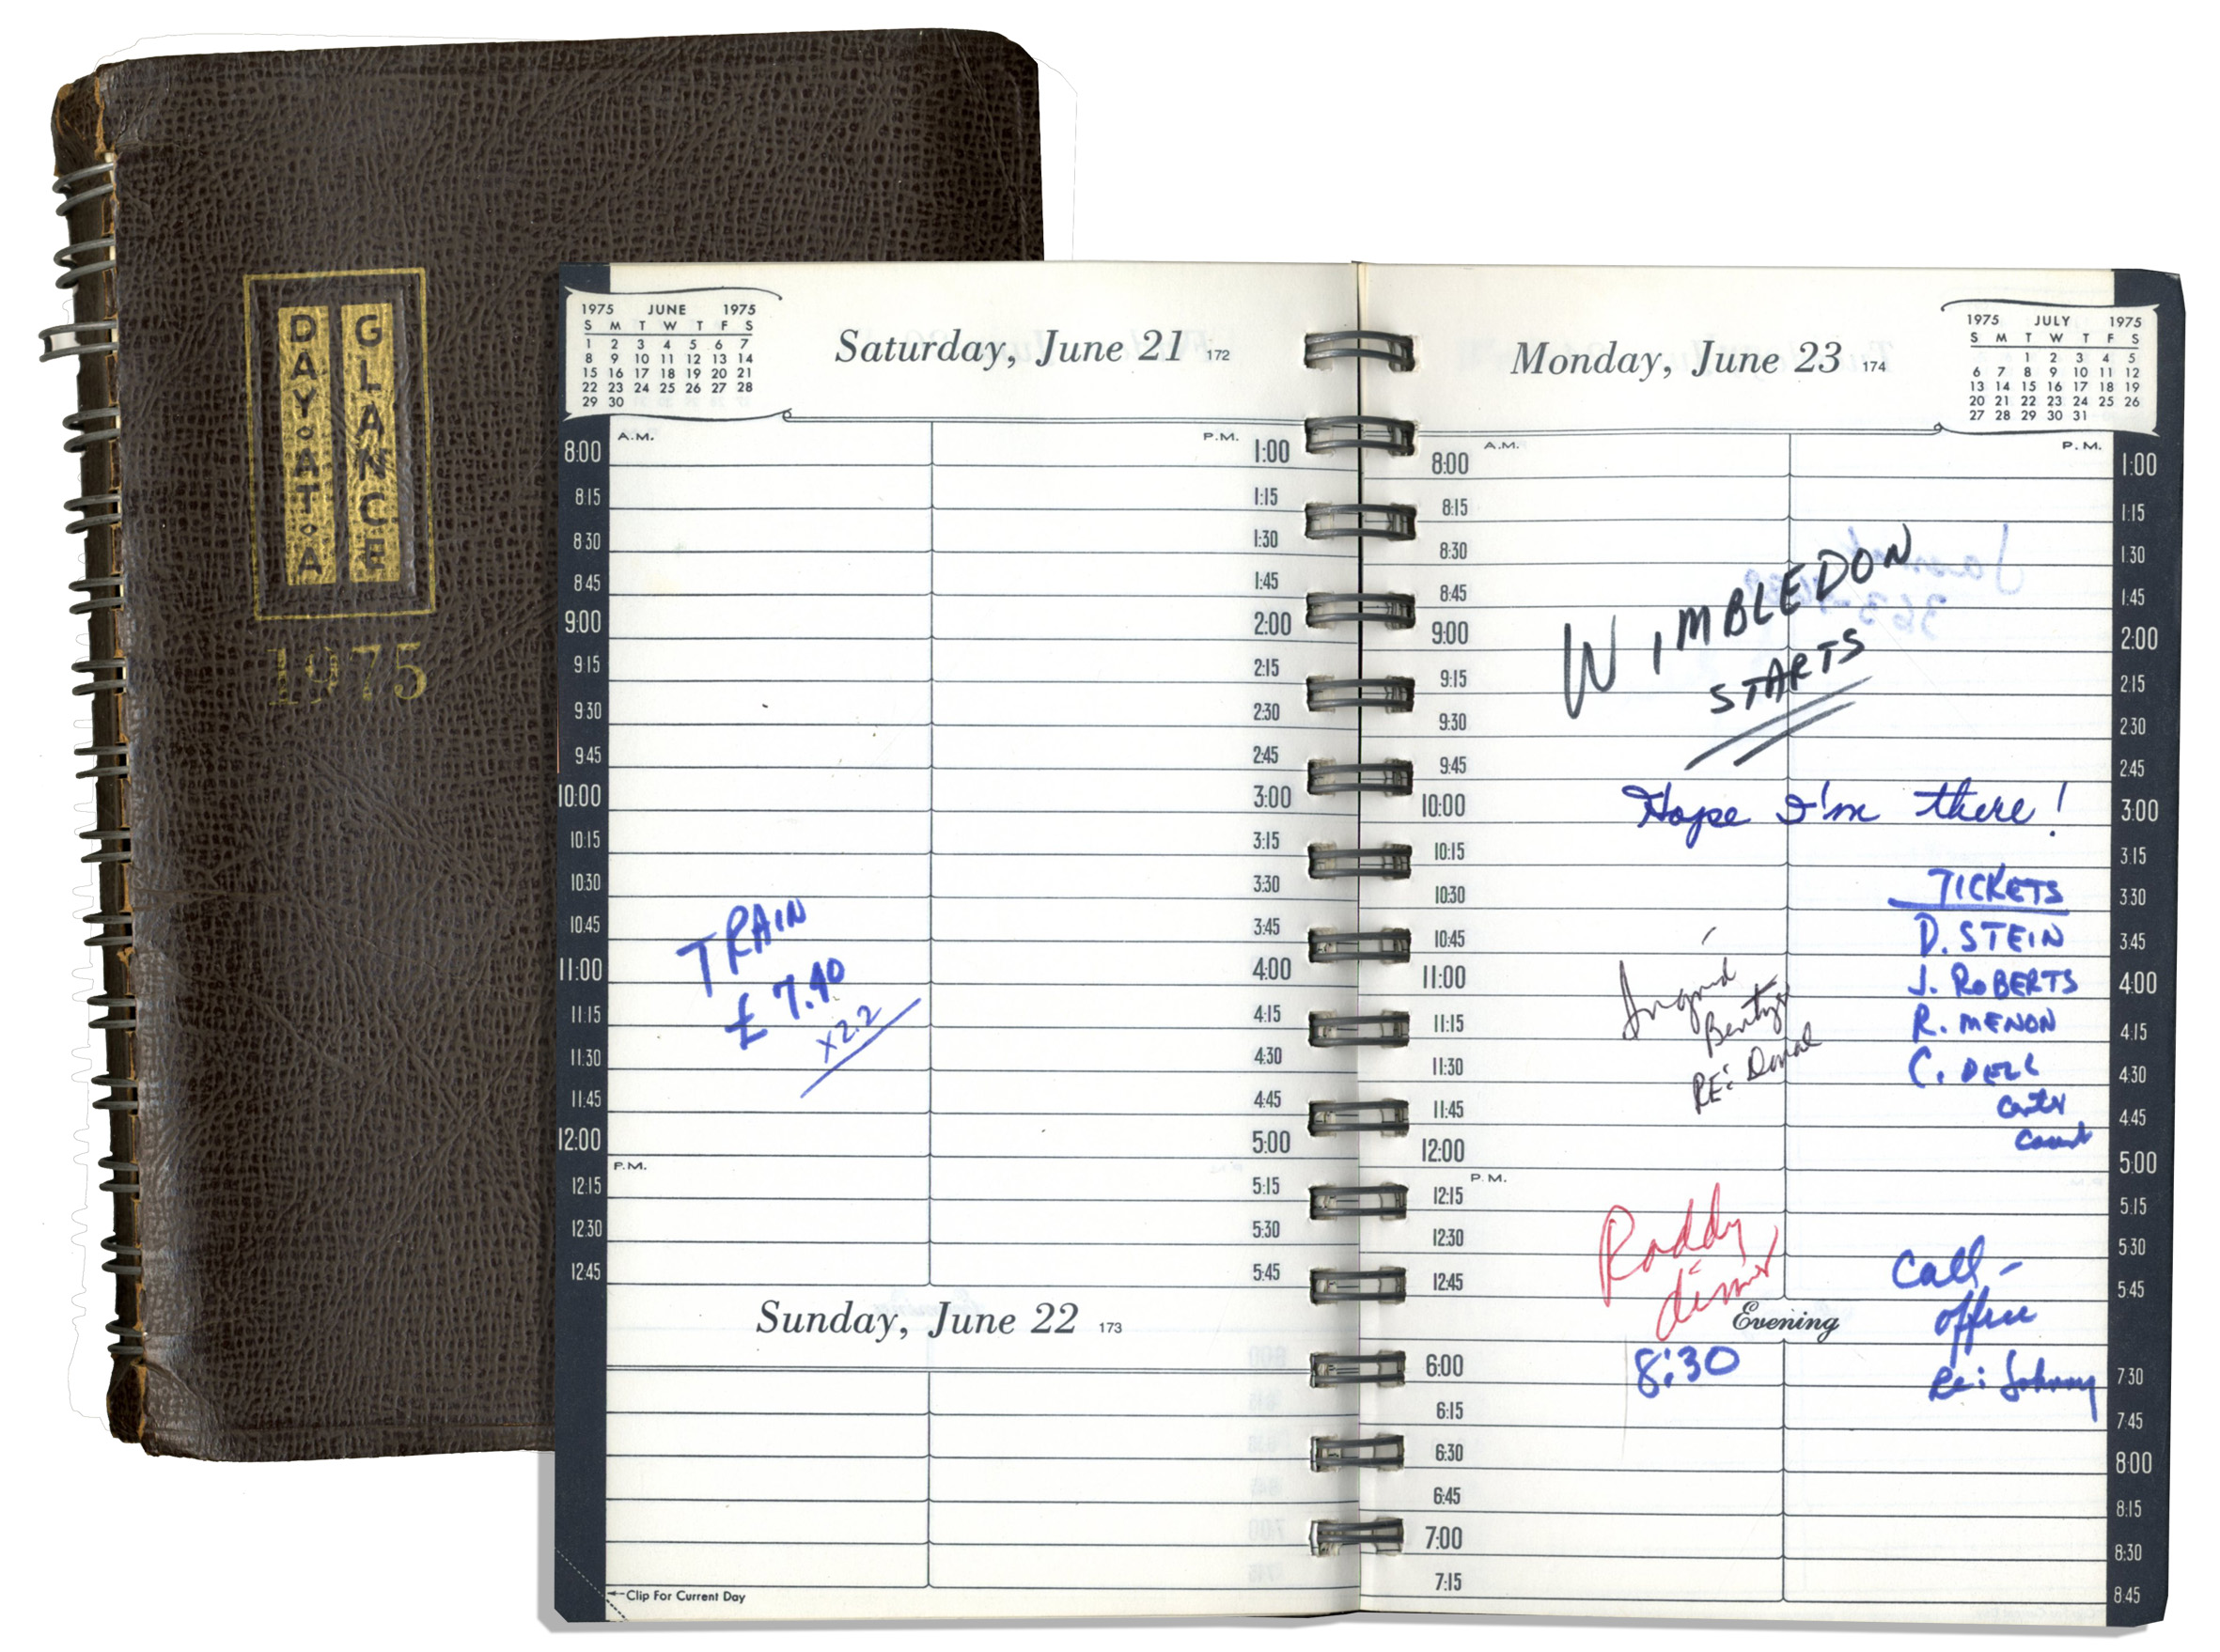 DAY·AT·A
GLANCE
1975
1975 JUNE 1975
S M T W T F S
1 2 3 4 5 6 7
8 9 10 11 12 13 14
15 16 17 18 19 20 21
22 23 24 25 26 27 28
29 30
Saturday, June 21 172
A.M.
P.M.
8:00
8:15
8:30
8:45
9:00
9:15
9:30
9:45
10:00
10:15
10:30
10:45
11:00
11:15
11:30
11:45
12:00
P.M.
12:15
12:30
12:45
TRAIN
£ 7.40
x2.2
1:00
1:15
1:30
1:45
2:00
2:15
2:30
2:45
3:00
3:15
3:30
3:45
4:00
4:15
4:30
4:45
5:00
5:15
5:30
5:45
Sunday, June 22 173
Clip For Current Day
Monday, June 23 174
1975 JULY 1975
S M T W T F S
1 2 3 4 5
6 7 8 9 10 11 12
13 14 15 16 17 18 19
20 21 22 23 24 25 26
27 28 29 30 31
A.M.
P.M.
8:00
8:15
8:30
8:45
9:00
9:15
9:30
9:45
10:00
10:15
10:30
10:45
11:00
11:15
11:30
11:45
12:00
P.M.
12:15
12:30
12:45
WIMBLEDON
STARTS
Hope I'm there!
TICKETS
D. STEIN
J. ROBERTS
R. MENON
C. DELL
Center
Court
Ingrid
RE:
Roddy
dinner
8:30
Call -
office
Re: Johnny
1:00
1:15
1:30
1:45
2:00
2:15
2:30
2:45
3:00
3:15
3:30
3:45
4:00
4:15
4:30
4:45
5:00
5:15
5:30
5:45
Evening
6:00
6:15
6:30
6:45
7:00
7:15
7:30
7:45
8:00
8:15
8:30
8:45